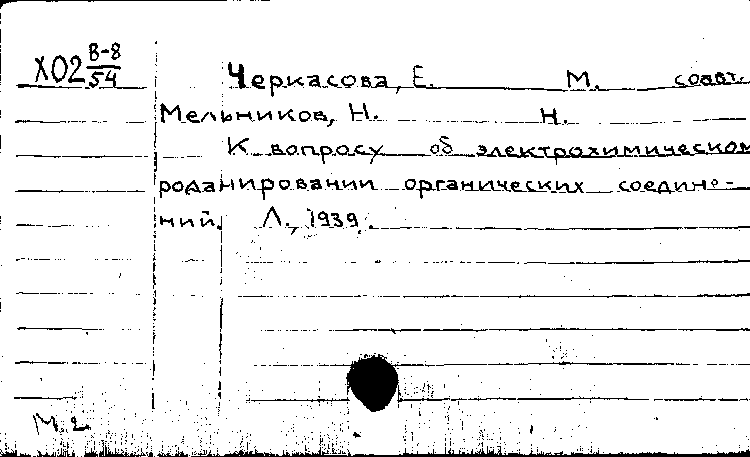 Х02 В-8/54
Черкасова, Е. М. соавт.
Мельников, Н. Н.
К вопросу об электрохимическом
роданировании органических соедине-
ний. Л., 1939.